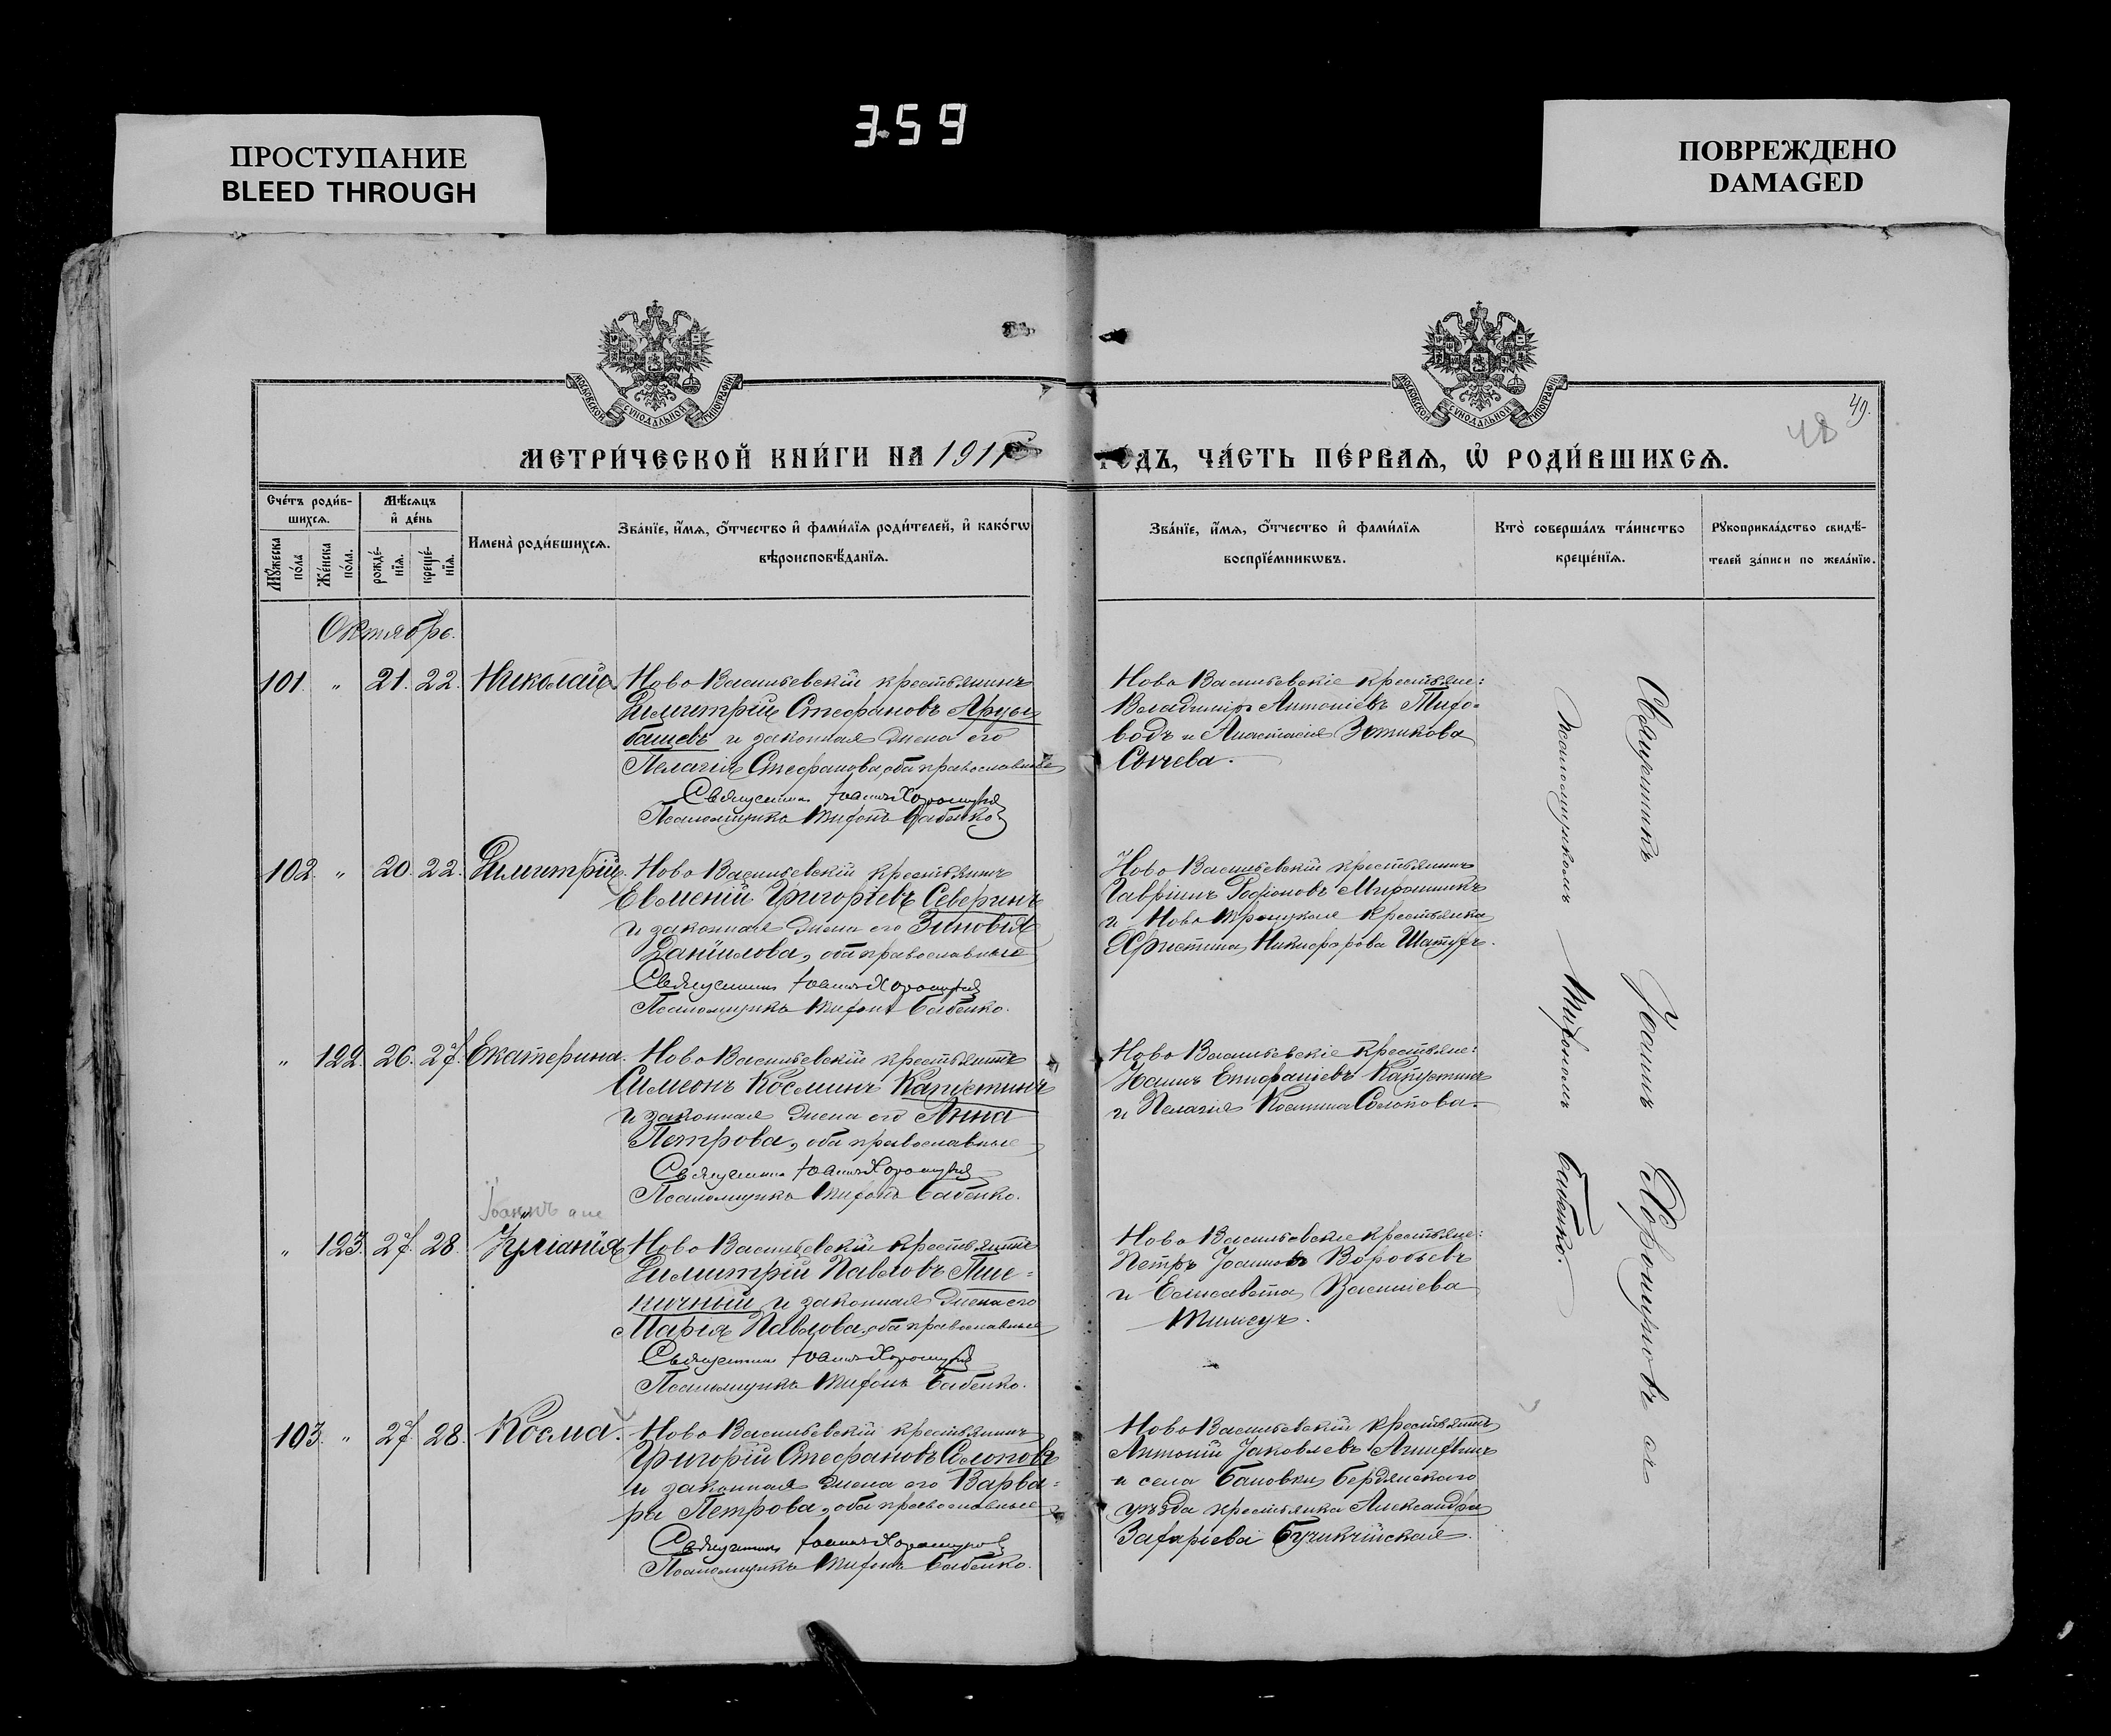 359
ПРОСТУПАНИЕ
BLEED THROUGH
ПОВРЕЖДЕНО
DAMAGED
МОСКОВСКОЙ СѴНОДАЛЬНОЙ ТИПОГРАФІИ
МОСКОВСКОЙ СѴНОДАЛЬНОЙ ТИПОГРАФІИ
49.
48
МЕТРИ́ЧЕСКОЙ КНИ́ГИ НА 191
ГО́ДЪ, ЧА́СТЬ ПЕ́РВАѦ, Ѡ҆ РОДИ́ВШИХСѦ.
Сче́тъ роди́в-
шихсѧ.
Мꙋ́жеска по́ла
Же́нска по́ла.
Мѣ́сѧцъ
и҆ де́нь
рожде́-
нїѧ.
креще́-
нїѧ.
Имена̀ роди́вшихсѧ.
Зва́нїе, и҆́мѧ, ѻ҆́тчество и҆ фами́лїѧ роди́телей, и҆ како́гѡ
вѣроисповѣ́данїѧ.
Зва́нїе, и҆́мѧ, ѻ҆́тчество и҆ фами́лїѧ
воспрїе́мникѡвъ.
Кто̀ соверша́лъ та́инство
креще́нїѧ.
Рꙋкоприкла́дство свидѣ́-
телей за́писи по жела́нїю.
Октябрь.
101. " 21. 22. Николай
Ново Васильевскій крестьянинъ
Димитрій Стефановъ Аруы
башевъ и законная жена его
Пелагія Стефанова, оба православные
Священникъ Іоаннъ Хорошуновъ
Псаломщикъ Тихонъ Бабенко
Ново Васильевскіе крестьяне:
Владиміръ Антоніевъ Тихо-
водъ и Анастасія
Сычева.
102. " 20. 22. Димитрій.
Ново Васильевскій крестьянинъ
Евменій Григоріевъ Северинъ
и законная жена его Зиновія
Даніилова, оба православные
Священникъ Іоаннъ Хорошуновъ
Псаломщикъ Тихонъ Бабенко.
Ново Васильевскій крестьянинъ
Гавріилъ Родіоновъ Мирошникъ
и Ново Троицкая крестьянка
Христина Никифорова
" 122. 26. 27. Екатерина.
Ново Васильевскій крестьянинъ
Симеонъ Космин Капустинъ
и законная жена его Анна
Петрова, оба православные
Священникъ Іоаннъ Хорошуновъ
Псаломщикъ Тихонъ Бабенко.
Ново Васильевскіе крестьяне:
Іоаннъ Епифаніевъ Капустинъ
и Пелагія Космина Солопова.
" 123. 27. 28. Іуліанія
Ново Васильевскій крестьянинъ
Димитрій Павловъ Пше-
ничный и законная жена его
Марія Павлова, оба православные
Священникъ Іоаннъ Хорошуновъ
Псаломщикъ Тихонъ Бабенко.
Ново Васильевские крестьяне:
Петръ Іоанновъ Воробьевъ
и Елисавета Василіева
103. " 27. 28. Косма.
Ново Васильевскій крестьянинъ
Григорій Стефановъ Солоповъ
и законная жена его Варва-
ра Петрова, оба православные
Священникъ Іоаннъ Хорошуновъ
Псаломщикъ Тихонъ Бабенко.
Ново Васильевскій крестьянинъ
Антоній Іаковлевъ
и села Бановки Бердянскаго
уѣзда крестьянка Александра
Захаріева
Священникъ Іоаннъ Хорошуновъ съ
псаломщикомъ Тихономъ Бабенко.